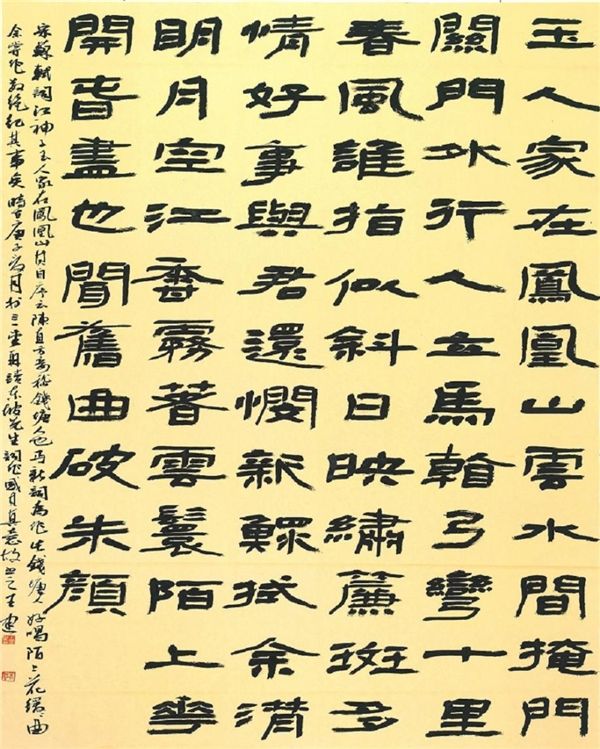 玉人家在鳳凰山雲水間掩門
關門外行人立馬看弓彎十里
春風誰指似斜日映繡簾斑多
情好事與君還憫新鰥拭余潸
明月空江香霧著雲鬟陌上華
開春盡也聞舊曲破朱顏
宋蘇軾詞江神子玉人家在鳳凰山其自序云陳直方妾嵇錢塘人也丐新詞為作此錢塘人好唱陌上花緩曲
余嘗作數絕紀其事矣時在庚子月於三再讀東坡先生詞作感其真意故書之王建